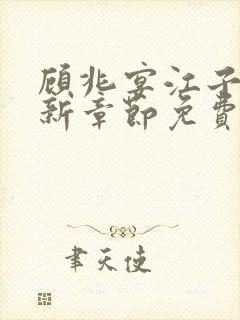 顾兆宴江子
新章节免费
聿天使